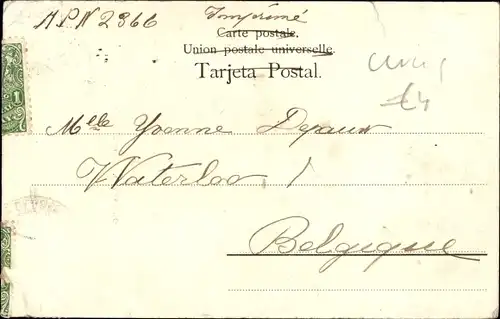 A.P.N 2366 Imprimé
Carte postale.
Union postale universelle.
Tarjeta Postal.
£4
1
Mlle Yvonne Depaux
Waterloo /
Belgique